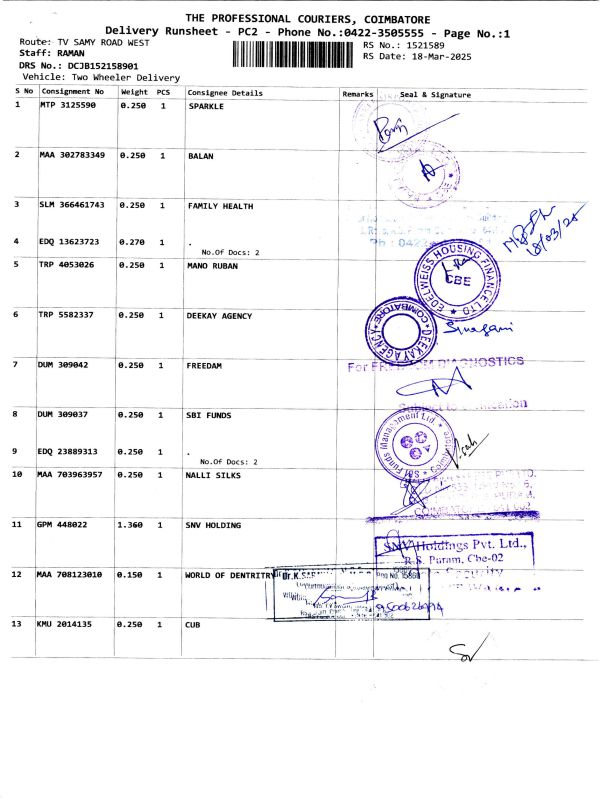 THE PROFESSIONAL COURIERS, COIMBATORE
Delivery Runsheet - PC2 - Phone No.:0422-3505555 - Page No.:1
Route: TV SAMY ROAD WEST
RS No.: 1521589
Staff: RAMAN
RS Date: 18-Mar-2025
DRS No.: DCJB152158901
Vehicle: Two Wheeler Delivery
S No Consignment No Weight PCS Consignee Details Remarks Seal & Signature
1 MTP 3125590 0.250 1 SPARKLE
2 MAA 302783349 0.250 1 BALAN
3 SLM 366461743 0.250 1 FAMILY HEALTH
18/03/25
4 EDQ 13623723 0.270 1 .
No.Of Docs: 2
Ph : 0422
5 TRP 4053026 0.250 1 MANO RUBAN
EDELWEISS HOUSING FINANCE LTD
CBE
6 TRP 5582337 0.250 1 DEEKAY AGENCY
DEEKAY AGENCY COIMBATORE
7 DUM 309042 0.250 1 FREEDAM
For FREEDOM DIAGNOSTICS
8 DUM 309037 0.250 1 SBI FUNDS
SBI Funds Management Ltd. Coimbatore
9 EDQ 23889313 0.250 1 .
No.Of Docs: 2
10 MAA 703963957 0.250 1 NALLI SILKS
11 GPM 448022 1.360 1 SNV HOLDING
SNV Holdings Pvt. Ltd.,
R.S. Puram, Cbe-02
12 MAA 708123010 0.150 1 WORLD OF DENTRITRY
13 KMU 2014135 0.250 1 CUB